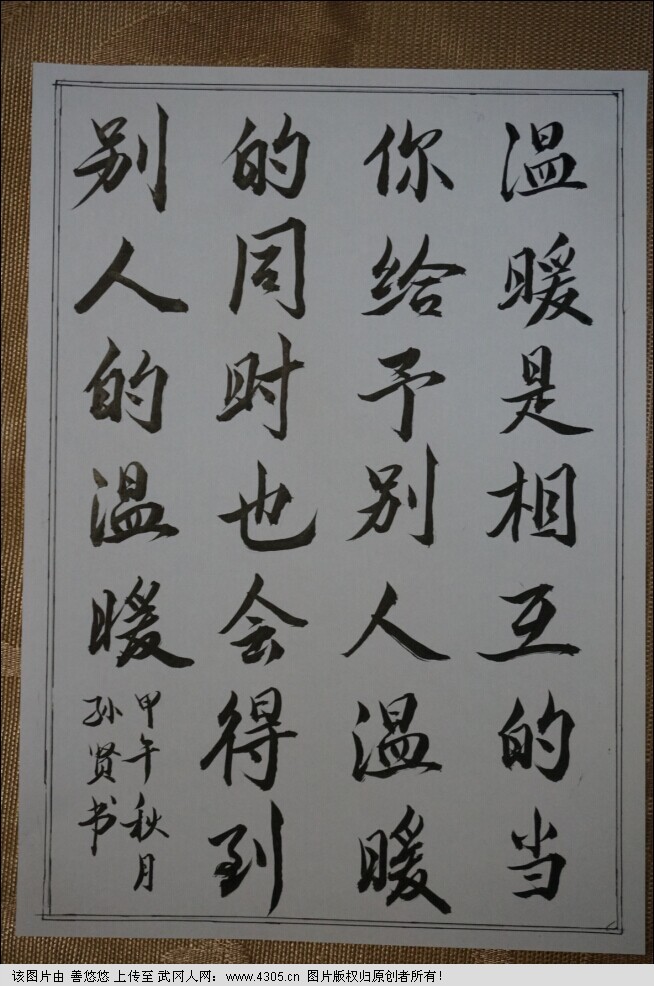 温暖是相互的当
你给予别人温暖
的同时也会得到
别人的温暖
甲午秋月
孙贤书
该图片由 善悠悠 上传至 武冈人网：www.4305.cn 图片版权归原创者所有！